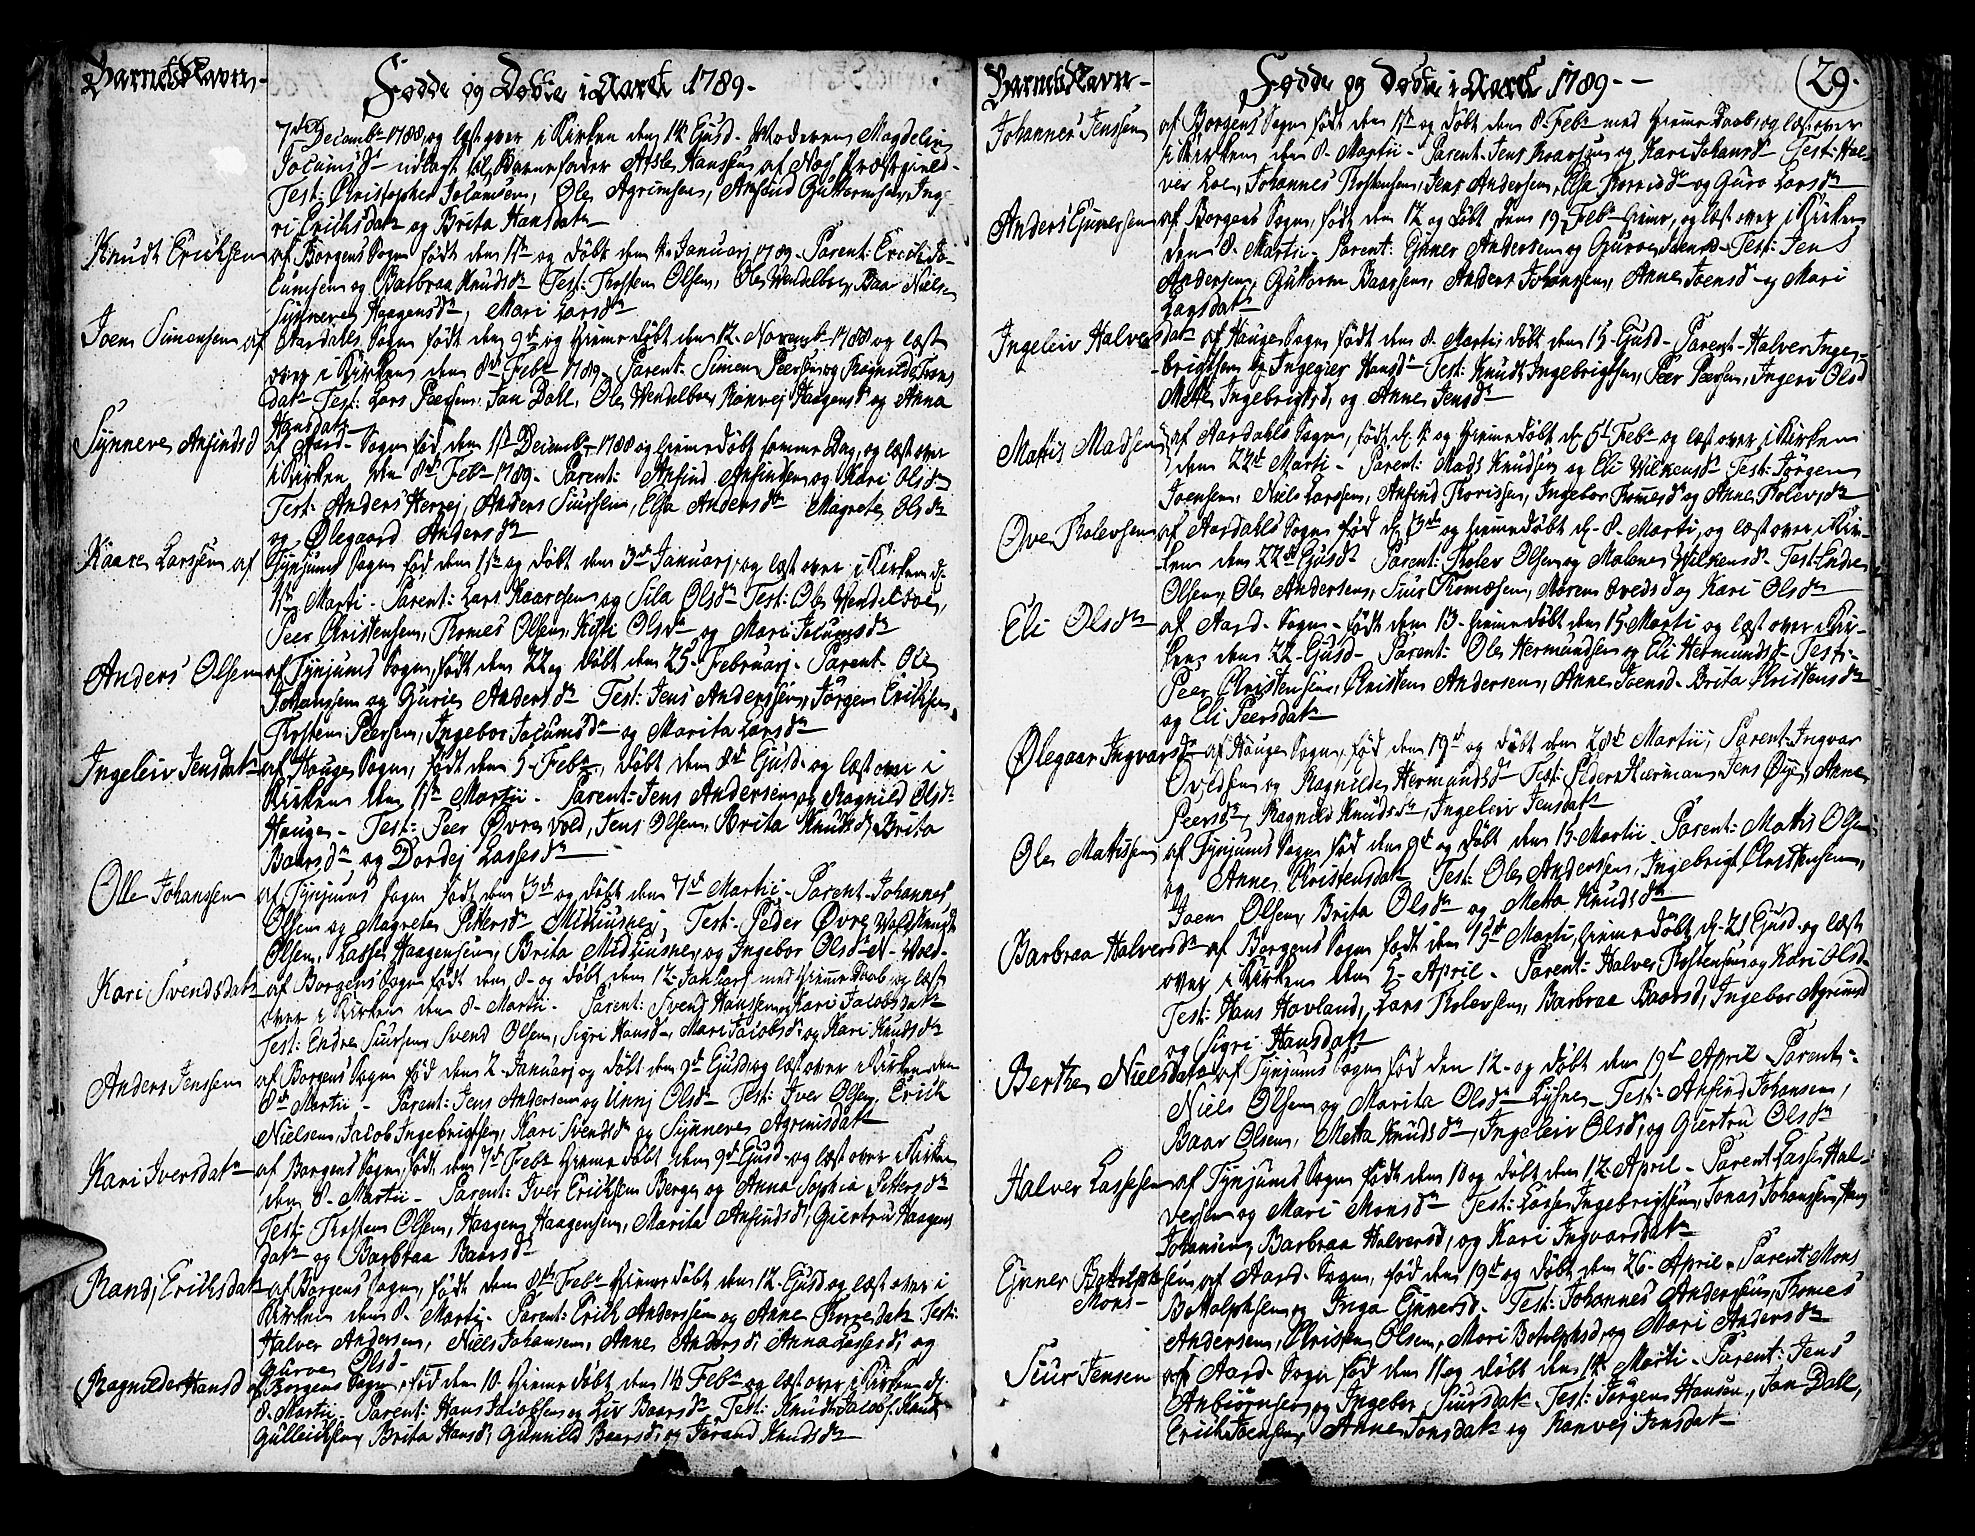 Barnets Navn - Fødde og Døbte i Aaret 1789 -
7de Decemb. 1788, og læst over i Kirken den 14 Ejusd. Moderen Magdelin
Jocumsdr udlagt til Barnefader Atsle Hansen af Næss Præstegield -
Test: Christopher Jocumsen, Ole Agrimsen, Anfind Guttormsen, Ing-
ri Erichsdatr og Brita Hansdatr
Knudt Erichsen af Borgens Sogn født den 1ste og døbt den Januarj 1789. Parent: Erich Jo-
cumsen og Barbraa Knudsdr Test: Thosten Olsen, Ole Wendelboe, Baar Niels
Synneve Haagensdr, Mari Larsdr
Joen Simensen af Aardahls Sogn født den 9de og hiemedøbt den 12. Novemb. 1788 og læst
over i Kirken den 8de Febr 1789. Parent: Simen Peersen og Ragnilda Jens
datr Test: Lars Peersen, Jan Dahl, Ole Wendelboe, Ranvej Haagensdr og Anna
Hansdatr
Synneve Anfindsd af Aard. Sogn fød den 1ste Decemb. 1788 og hiemedøbt samme Dag, og læst over
i Kirken den 8de Febr 1789. Parent: Anfind Anfindsen og Kari Olsdr
Test: Anders Herrej, Anders Siursen, Elsa Andersdr Magrete Olsdr
og Ølegaard Andersdr
Kaare Larssen af Tynjums Sogn fød den 1ste og døbt den 3de Januarj, og læst over i Kirken d.
1ste Marti - Parent: Lars Kaaresen og Sila Olsdr Test: Ole Wendelboe,
Peer Christensen, Thomes Olsen, Kisti Olsdr og Mari Jocumsdr
Anders Olsen af Tynjums Sogn, født den 22 og døbt den 25. Februarj - Parent. Ole
Johansen og Gurie Andersdr Test: Jens Anderssen, Jørgen Erichsen,
Thosten Peersen, Ingebor Jocumsdr og Marita Larsdr
Ingeleiv Jensdatr af Houge Sogn, født den 5. Febr, døbt den 8de Ejusd. og læst over i
Kirken den 1ste Martii. Parent: Jens Andersen og Ragnild Olsdr
Houge - Test: Peer Øvrevold, Jens Olsen, Brita Knudsd, Brita
Baarsdr og Dordej Lassesdr
Olle Johanssen af Tynjums Sogn født den 3de og døbt den 7de Martii - Parent: Johannes
Olsen og Magrete Pettersdr Midiusnej Test. Peder Øvre Wold Knudt
Olsen, Lasse Haagensen, Brita Midiusnej og Ingebor Olsdr N. Wold -
Kari Svendsdatr af Borgens Sogn født den 8. og døbt den 12. Januarj med hiemedaab, og læst
over i Kirken den 8. Martii. Parent: Svend Hanssen og Kari Jacobsdatr
Test: Endre Siursen, Svend Olsen, Sigri Hansdr, Mari Jacobsdr og Kari Knudsdr
Anders Jenssen af Borgens Sogn fød den 2. Januarj og døbt den 9de Ejusd. og læst over i Kirken den
8de Martii - Parent: Jens Andersen og Unnj Olsdr Test: Iver Olsen, Erich
Nielsen, Jacob Ingebrigtsen, Kari Svendsdr og Synneve Agrimsdatr
Kari Iversdatr af Borgens Sogn, født den 7de Febr hiemedøbt den 9de Ejusd. og læst over i Kirken
den 8. Martii - Parent: Iver Erichsen Berge og Anna Sophia Pettersdr
Test: Thosten Olsen, Haagen Haagensen, Marita Anfindsdr, Giertru Haagens
datr og Barbraa Baarsdr
Randj Erichsdatr af Borgens Sogn, født den 8de Febr hiemedøbt den 12. Ejusd og læst over i
Kirken den 8. Martii - Parent: Erich Anderssen og Anne datr Test:
Halver Andersen, Niels Johansen, Anne Andersd, Anna Lassesd, og
Gurve Olsd -
Ragnilde Hansd af Borgens Sogn, fød den 10. hiemedøbt den 14 Febr og læst over i Kirken d.
8. Martii, Parent: Hans Jacobsen og Liv Baarsdr Test: Knudt Jacobs. Knut
Gulleichsen, Brita Hansd, Gunnild Baarsd, og Jorand Knudsdr
Barnets Navn - Fødde og Døbte i Aaret 1789 - - 29.
Johannes Jenssen af Borgens Sogn født den 1ste og døbt den 8. Febr med hiemedaab, og læst over
i Kirken den 8. Martii - Parent: Jens Kaarsen og Kari Johansdr Test: Hal-
ver Loe, Johannes Thostensen, Jens Andersen, Elsa og Guro Larsdr
Anders Ejnersen af Borgens Sogn, født den 12 og døbt den 19. Febr hieme, og læst over i Kirken
den 8. Martii. Parent: Ejner Andersen og Gurve Joensd. Test: Jens
Andersen, Guttorm Baarsen, Anders Johansen, Anne Joensd og Mari
Larsdatr
Ingeleiv Halversdatr af Houge Sogn født den 8. Martii, døbt den 15 Ejusd - Parent. Halver Inge-
brigtsen og Ingegier Hansdr Test: Knudt Ingebrigtsen, Peer Peersen, Ingeri Olsd
Mette Ingebrigtsd, og Anne Jensdr
Mattis Madsen af Aardahls Sogn, født d. og hiemedøbt d. 5te Febr og læst over i Kirken
den 22de Marti - Parent: Mads Knudsen og Eli Wilkensdr Test: Jørgen
Joensen, Niels Larssen, Anfind Thorissen, Ingebor Thomesdr og Anne Tholevsdr
Ove Tholevsen af Aardahls Sogn fød d. 3de og hiemedøbt d. 8. Marti, og læst over i Kir-
ken den 22de Ejusd. Parent: Tholev Olsen og Malene Wilkensdr. Test: Endre
Olsen, Ole Andersen, Siur Thomæsen, Maren Ovedsd og Kari Olsdr
Eli Olsdr af Aard. Sogn - født den 13. hiemedøbt den 15 Marti og læst over i Kir-
ken den 22. Ejusd - Parent: Ole Hermundsen og Eli Hermundsdr Test:-
Peer Christensen, Christen Andersen, Anne Joensd. Brita Christensdr
og Eli Peersdatr
Ølegaar Ingvarsdr af Houge Sogn, fød den 19de og døbt den 28de Martii, Parent: Ingvar
Ovedsen og Ragnilde Hermundsdr Test: Peder Herman, Jens Øyj, Anne
Peersdr, Ragnild Knudsdr, Ingeleiv Jensdatr
Ole Mattissen af Tynjums Sogn fød den 9de og døbt den 15. Martii. Parent: Mattis Olsen
og Anne Christensdatr Test: Ole Andersen, Ingebrigt Christensen,
Joen Olsen, Brita Olsdr og Metta Knudsdr
Barbraa Halversdr af Borgens Sogn født den 15de Marti, hiemedøbt d. 21 Ejusd. og læst
over i Kirken den 5. April - Parent: Halver Thostensen og Kari Olsdr
Test: Hans Hovland, Lars Tholevsen, Barbraa Baarsd, Ingebor Agrimsd
og Sigri Hansdatr
Berthe Nielsdatr af Tynjums Sogn fød den 12. og døbt den 19de April - Parent:
Niels Olsen og Marita Olsdr Lysne - Test: Anfind Johansen,
Baar Olsen, Metta Knudsdr, Ingeleiv Olsdr, og Giertru Olsdr
Halver Lassesen af Tynjums Sogn født den 10 og døbt den 12. April - Parent: Lasse Hal-
versen og Mari Monsdr Test: Lasse Ingebrigtsen, Jonas Johansen, Hans
Johansen, Barbraa Halversd, og Kari Ingvarsdatr
Ejner Bottolphsen af Aard. Sogn, fød den 19de og døbt den 26. April. Parent: Mons
Mons - Bottolphsen og Inga Ejnersd. Test: Johannes Andersen, Thomes
Andersen, Christen Olsen, Mari Botolphsd, og Mari Andersdr
Siur Jensen af Aard. Sogn fød den 11 og døbt den 14. Marti - Parent: Jens
Anbiørnsen og Ingebor Siursdatr. Test: Jørgen Hansen, Jan Dahl,
Erich Joensen, Anne Jonsdatr og Ranvej Jensdatr